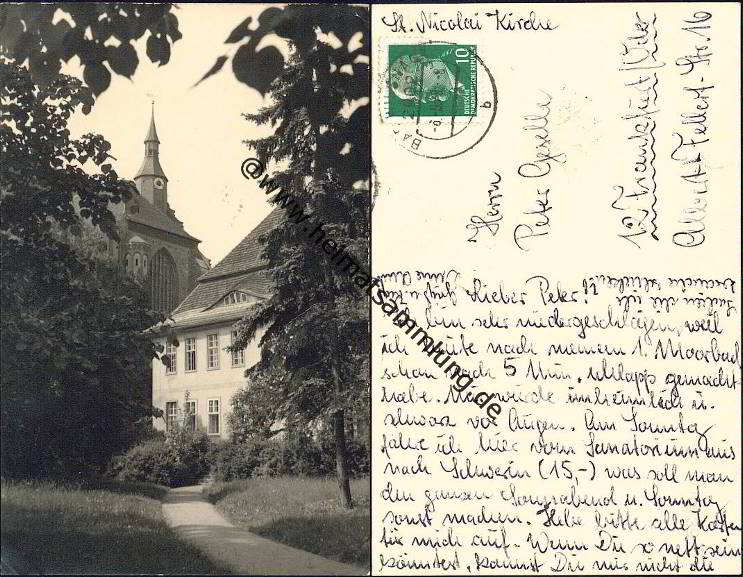 St. Nicolai Kirche
10
DEUTSCHE
DEMOKRATISCHE REPUBLIK
BAD
b
Herrn
Peter Geselle
12 Frankfurt/Oder
Str. 16
Lieber Peter!
Ich bin sehr niedergeschlagen, weil
ich heute nach meinem 1. Moorbad
schon nach 5 Min. schlapp gemacht
habe. Mir wurde unheimlich u.
schwarz vor Augen. Am Sonntag
fahre ich hier vom Sanatorium aus
nach Schwerin (15,-) was soll man
den ganzen Sonnabend u. Sonntag
sonst machen. Hebe bitte alle Karten
für mich auf. Wenn Du so nett sein
könntest, kannst Du mir nicht die
@www.heimatsammlung.de